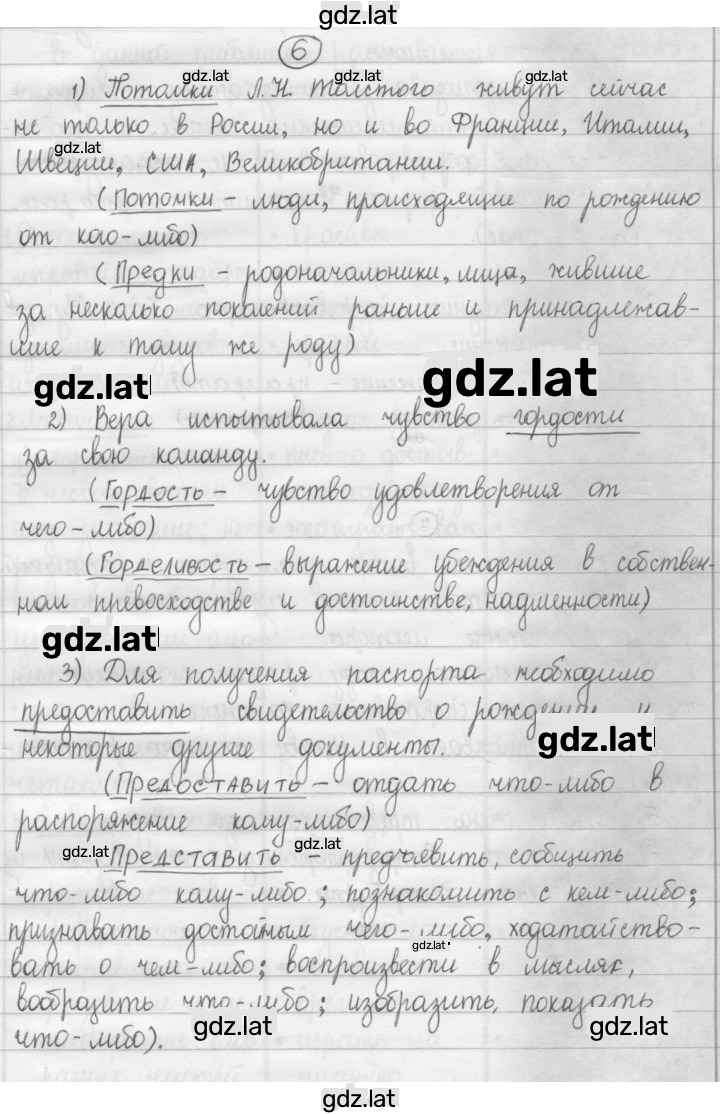 gdz.lat
6
gdz.lat
gdz.lat
1) Потомки Л.Н. Толстого живут сейчас
не только в России, но и во Франции, Италии,
gdz.lat
Швеции, США, Великобритании.
(Потомки - люди, происходящие по рождению
от каого-либо)
(Предки - родоначальники, лица, жившие
за несколько поколений раньше и принадлежав-
шие к тому же роду)
gdz.lat
gdz.lat
2) Вера испытывала чувство гордости
за свою команду.
(Гордость - чувство удовлетворения от
чего-либо)
(Горделивость - выражение убеждения в собствен-
ном превосходстве и достоинстве, надменности)
gdz.lat
3) Для получения паспорта необходимо
предоставить свидетельство о рождении и
gdz.lat
некоторые другие документы.
(Предоставить - отдать что-либо в
распоряжение кому-либо)
gdz.lat
gdz.lat
Представить - предъявить, сообщить
что-либо кому-либо; познакомить с кем-либо;
признавать достойным чего-либо, ходатайство-
gdz.lat
вать о чем-либо; воспроизвести в мыслях,
вообразить что-либо; изобразить, показать
gdz.lat
gdz.lat
что-либо).
gdz.lat